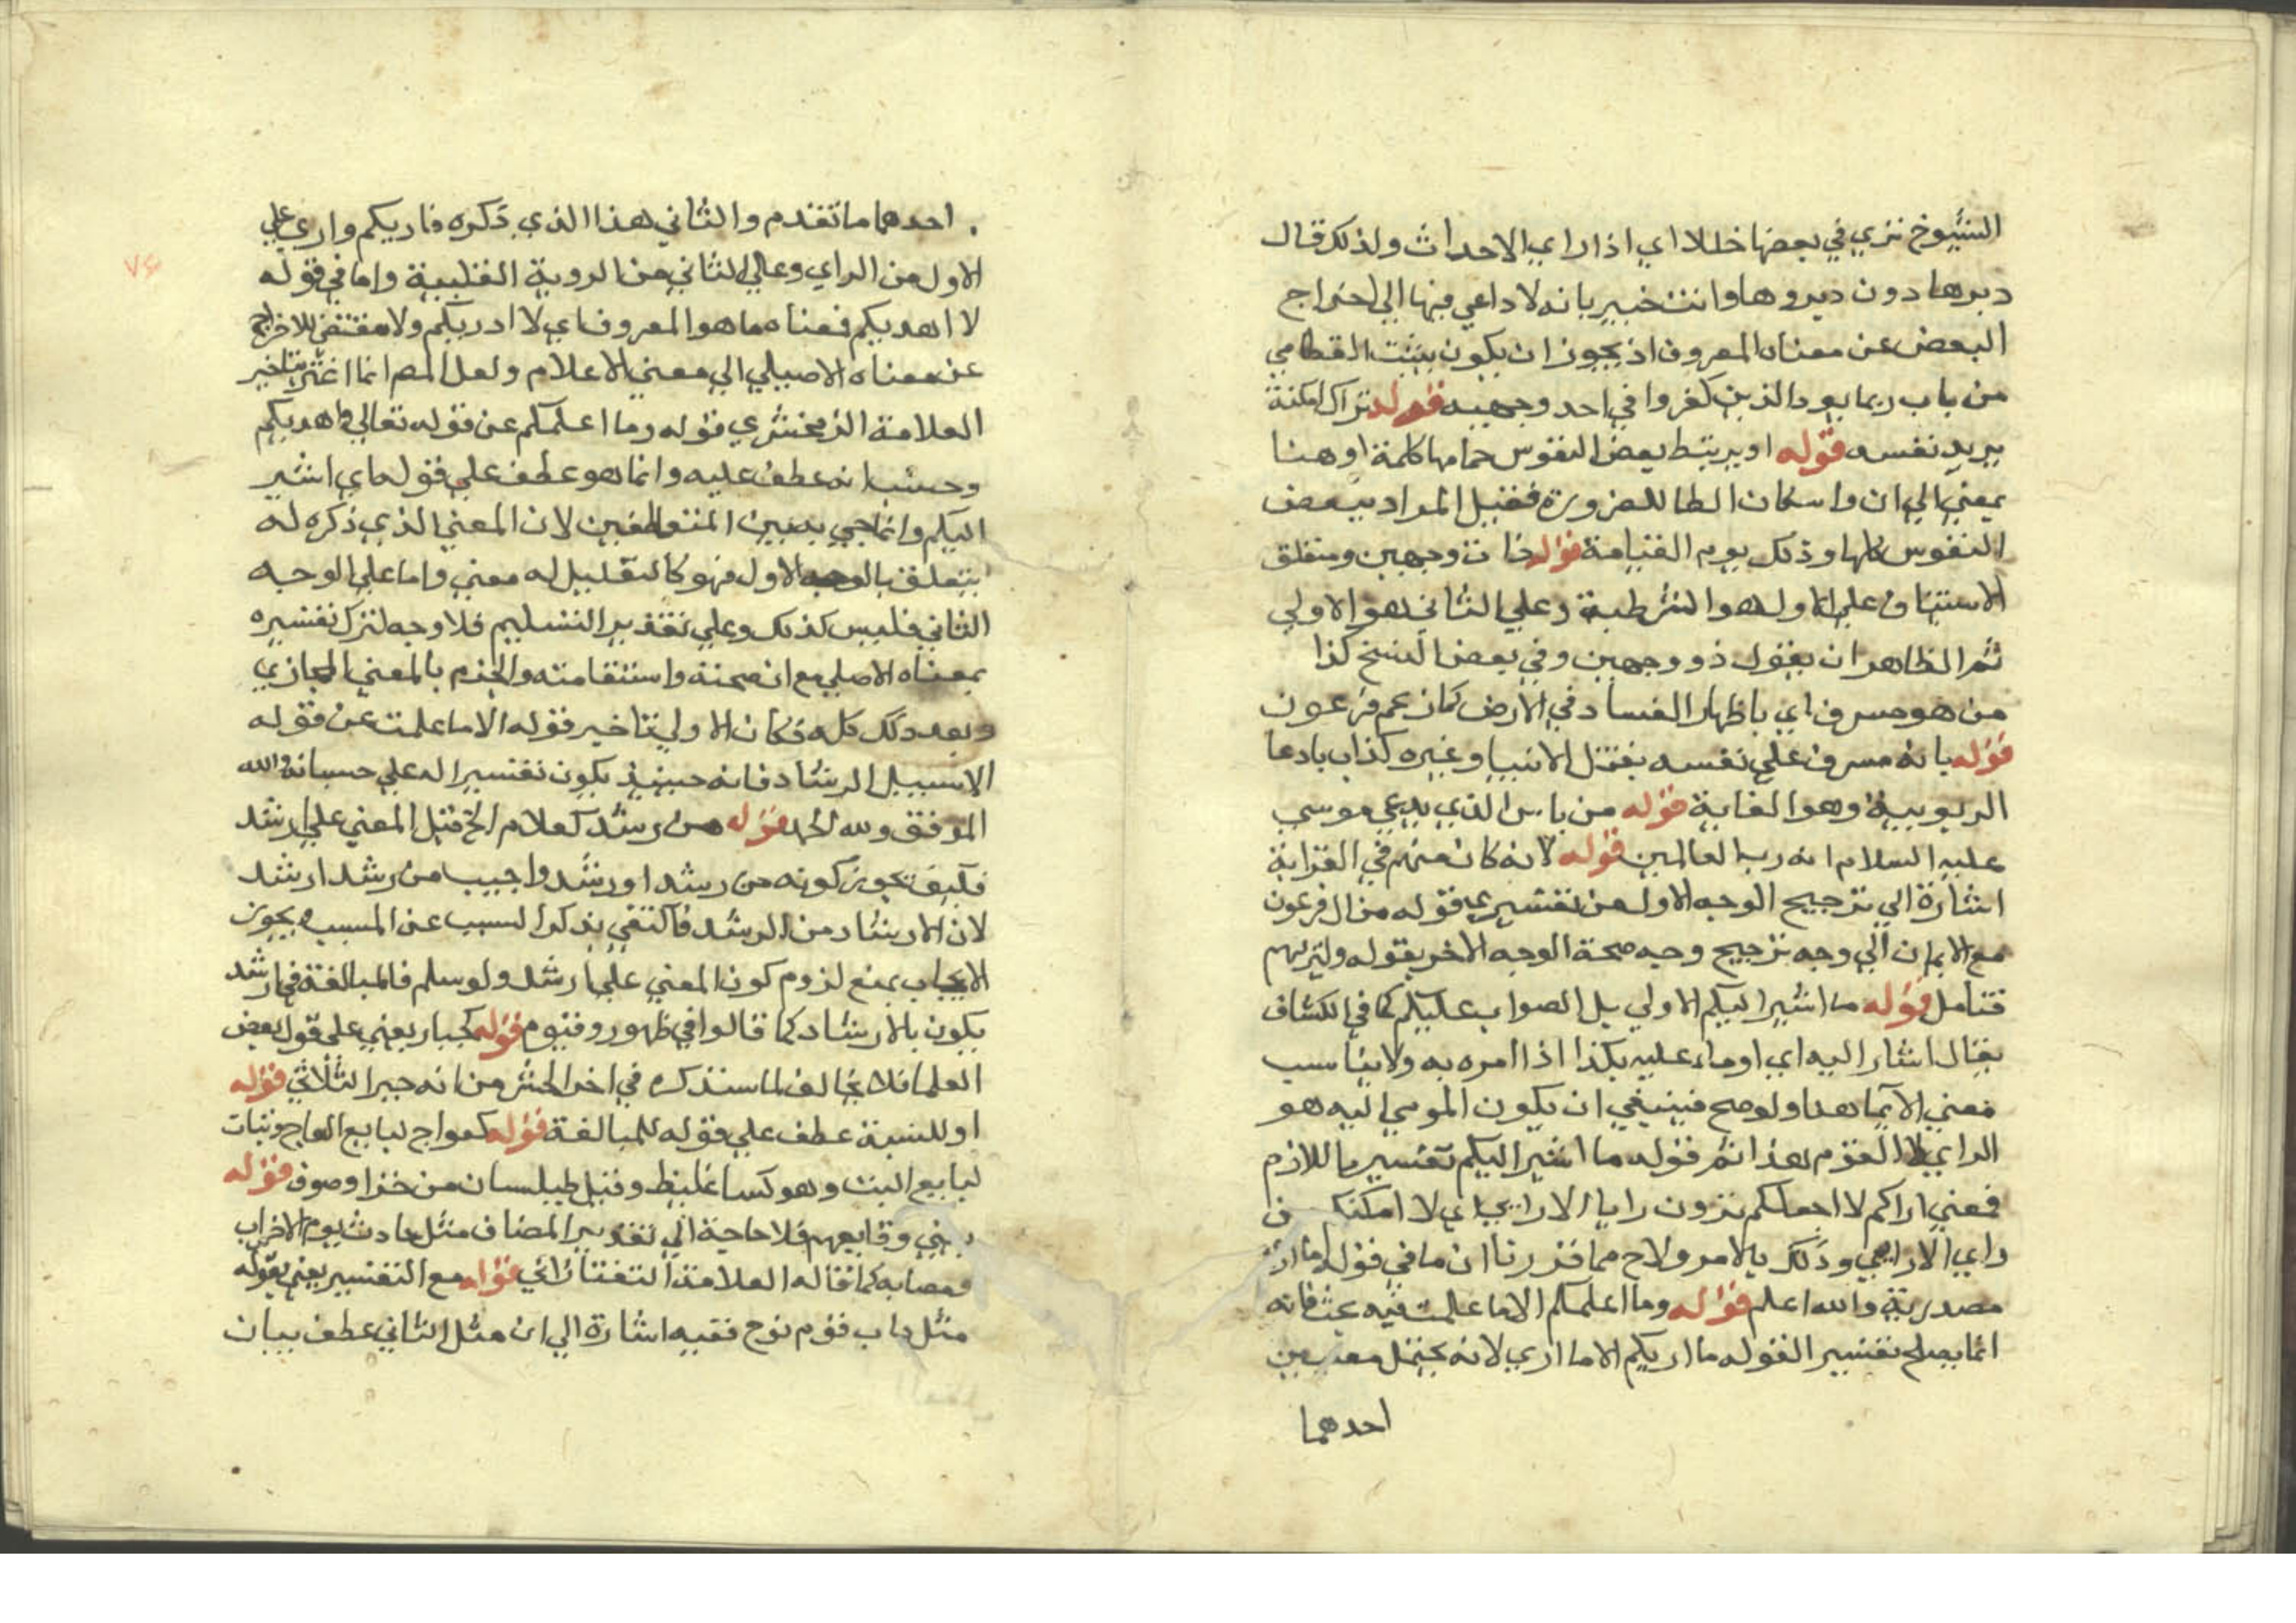 الشيوخ تري في بعضها خللا اي اذا راي الاحداث ولذلك قال
دبرها دون ديروها وانت خبير بانه لا داعي فيها الي اخراج
البعض عن معناه المعروف اذ يجوز ان يكون بيت القطامي
من باب ربما يود الذين كفروا في احد وجهيه قوله تراك امكنة
يريد نفسه قوله او يرتبط بعض النفوس حمامها كلمة او هنا
بمعني الي ان واسكان الطا للضرورة فقيل المراد ببعض
النفوس كلها وذلك يوم القيامة قوله ذات وجهين ومتعلق
الاستيناف علي الاول هو الشرطية وعلي الثاني هو الاولي
ثم الظاهر ان يقول ذو وجهين وفي بعض النسخ كذا
من هو مسرف اي باظهار الفساد في الارض كما زعم فرعون
قوله بانه مسرف علي نفسه بقتل الانبيا وغيره كذاب بادعا
الربوبية وهو الغاية قوله من باس الذي يدعي موسي
عليه السلام انه رب العالمين قوله لانه كان منهم في القرابة
اشارة الي ترجيح الوجه الاول من تفسيري قوله من ال فرعون
مع الايمان الي وجه ترجيح وجه صحة الوجه الاخر بقوله وليريهم
فتامل قوله ما اشير اليكم الاولي بل الصواب عليكم كما في الكشاف
يقال اشار اليه اي اوماء عليه بكذا اذا امره به ولا يناسب
معني الايما هنا ولو صح فينبغي ان يكون المومي اليه هو
الراي لا القوم هذا ثم قوله ما اشير اليكم تفسير باللازم
فمعني اراكم لا اجعلكم ترون رايا الا رايي اي لا امكنكم من
راي الا رايي وذلك بالامر ولاح مما قررنا ان ما في قوله ما اري
مصدرية والله اعلم قوله وما اعلمكم الا ما علمت فيه بحث فانه
انما يصلح تفسيرا لقوله ما اريكم الا ما اري لانه يحتمل معنيين
احدهما
احدهما ما تقدم والثاني هذا الذي ذكره فاريكم واري علي
الاول من الراي وعلي الثاني من الروية القلبية واما في قوله
لا اهديكم فمعناه ما هو المعروف اي لا ادريكم ولا مقتضي للاخراج
عن معناه الاصلي الي معني الاعلام ولعل المص انما اغتر بتاخير
العلامة الزمخشري قوله وما اعلمكم عن قوله تعالي وما اهديكم
وحسب انه عطف عليه وانما هو عطف علي قوله ما اي اشير
اليكم وانما جي به بين المتعاطفين لان المعني الذي ذكره له
يتعلق بالوجه الاول فهو كالتعليل له معني واما علي الوجه
الثاني فليس كذلك وعلي تقدير التسليم فلا وجه لترك تفسيره
بمعناه الاصلي مع ان صحته واستقامته والجزم بالمعني المجازي
وبعد ذلك كله فكان الاولي تاخير قوله الا ما علمت عن قوله
الا سبيل الرشاد فانه حينئذ يكون تفسيرا له علي حسبانه والله
الموفق ولله الحمد قوله من رشد كعلام الخ قيل المعني علي ارشد
فكيف تجويز كونه من رشد او رشد واجيب من رشد ارشد
لان الارشاد من الرشد فاكتفي بذكر السبب عن المسبب ويجوز
الايجاب بمنع لزوم كون المعني علي ارشد ولو سلم فالمبالغة في ارشد
يكون بالارشاد كما قالوا في ظهور وقيوم قوله كجبار يعني علي قول بعض
العلما فلا يخالف لما سنذكره في اخر الحشر من انه جبر الثلاثي قوله
او للنسبة عطف علي قوله للمبالغة قوله كعواج لبايع العاج وبتات
لبايع البت وهو كسا غليظ وقيل طيلسان من خز او صوف قوله
يعني وقايعهم فلا حاجة الي تقدير المضاف مثل حادث يوم الاحزاب
ومصابه كما قاله العلامة التفتازاني قوله مع التفسير يعني بقوله
مثل داب قوم نوح ففيه اشارة الي ان مثل الثاني عطف بيان